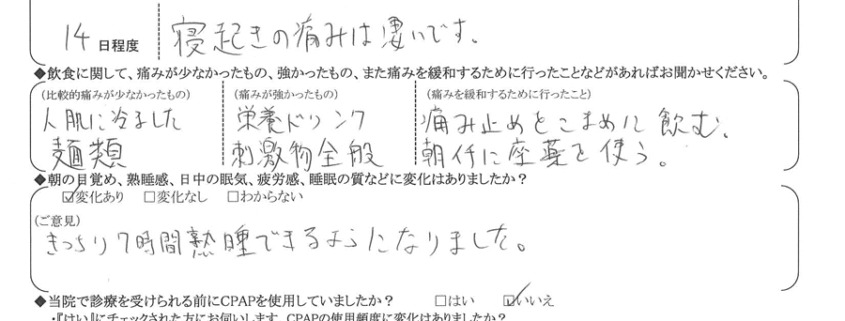 14 日程度 寝起きの痛みは凄いです。
◆飲食に関して、痛みが少なかったもの、強かったもの、また痛みを緩和するために行ったことなどがあればお聞かせください。
(比較的痛みが少なかったもの) (痛みが強かったもの) (痛みを緩和するために行ったこと)
人肌に冷ました 栄養ドリンク 痛み止めをこまめに飲む、
麺類 刺激物全般 朝イチに座薬を使う。
◆朝の目覚め、熟睡感、日中の眠気、疲労感、睡眠の質などに変化はありましたか？
☑変化あり □変化なし □わからない
(ご意見)
きっちり7時間熟睡できるようになりました。
◆当院で診療を受けられる前にCPAPを使用していましたか？ □はい ☑いいえ
・『はい』にチェックされた方にお伺いします。CPAPの使用頻度に変化はありましたか？